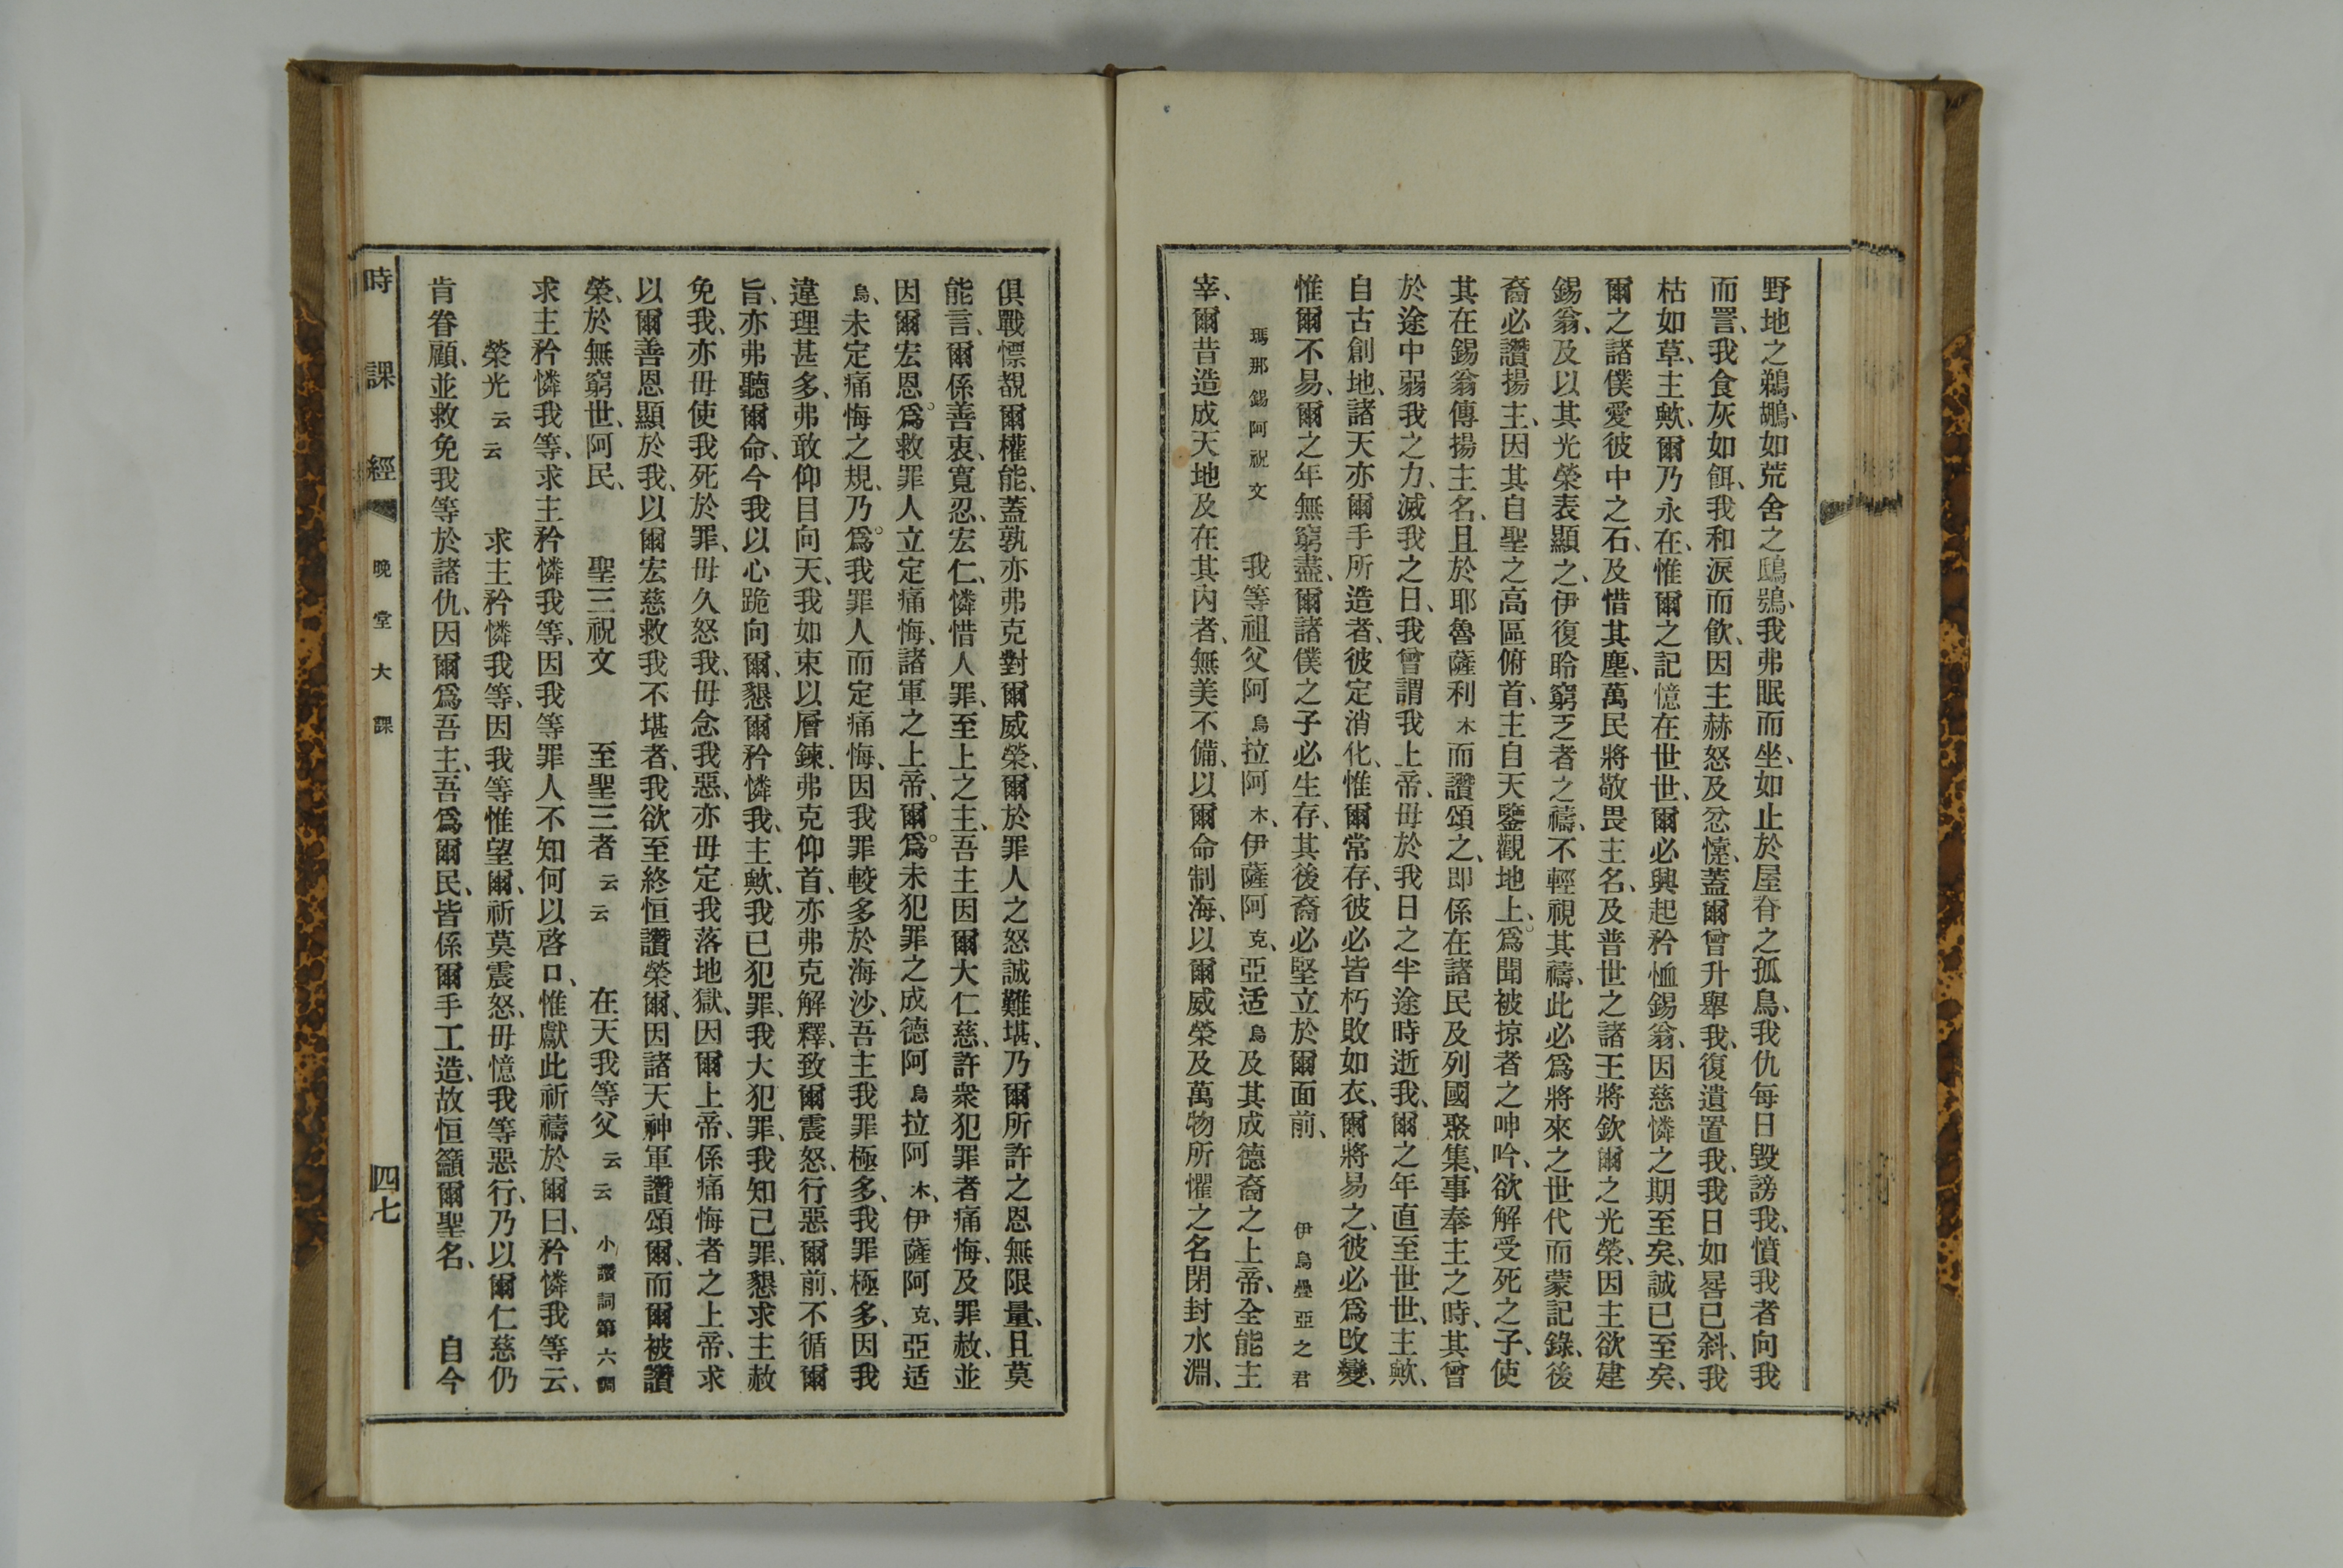 野地之鵜鶘、如荒舍之鴟鴞、我弗眠而坐、如止於屋脊之孤鳥、我仇每日毀謗我、憤我者向我
而詈、我食灰如餌、我和淚而飲、因主赫怒及忿懥、蓋爾曾升舉我、復遺置我、我日如晷已斜、我
枯如草、主歟、爾乃永在、惟爾之記憶在世世、爾必興起矜恤錫翁、因慈憐之期至矣、誠已至矣、
爾之諸僕愛彼中之石、及惜其塵、萬民將敬畏主名、及普世之諸王將欽爾之光榮、因主欲建
錫翁、及以其光榮表顯之、伊復聆窮乏者之禱、不輕視其禱、此必爲將來之世代而蒙記錄、後
裔必讚揚主、因其自聖之高區俯首、主自天鑒觀地上、爲聞被掠者之呻吟、欲解受死之子、使
其在錫翁傳揚主名、且於耶魯薩利木而讚頌之、即係在諸民及列國聚集、事奉主之時、其曾
於途中弱我之力、滅我之日、我曾謂我上帝、毋於我日之半途時逝我、爾之年直至世世、主歟、
自古創地、諸天亦爾手所造者、彼定消化、惟爾常存、彼必皆朽敗如衣、爾將易之、彼必爲改變、
惟爾不易、爾之年無窮盡、爾諸僕之子必生存、其後裔必堅立於爾面前、 伊烏疊亞之君
瑪那錫阿祝文 我等祖父阿烏拉阿木、伊薩阿克、亞适烏及其成德裔之上帝、全能主
宰、爾昔造成天地及在其内者、無美不備、以爾命制海、以爾威榮及萬物所懼之名閉封水淵、
俱戰慄覩爾權能、蓋孰亦弗克對爾威榮、爾於罪人之怒誠難堪、乃爾所許之恩無限量、且莫
能言、爾係善衷、寬忍、宏仁、憐惜人罪、至上之主、吾主因爾大仁慈、許衆犯罪者痛悔、及罪赦、並
因爾宏恩爲救罪人立定痛悔、諸軍之上帝、爾爲未犯罪之成德阿烏拉阿木、伊薩阿克、亞适
烏、未定痛悔之規、乃爲我罪人而定痛悔、因我罪較多於海沙、吾主我罪極多、我罪極多、因我
違理甚多、弗敢仰目向天、我如束以層鍊、弗克仰首、亦弗克解釋、致爾震怒、行惡爾前、不循爾
旨、亦弗聽爾命、今我以心跪向爾、懇爾矜憐我、主歟、我已犯罪、我大犯罪、我知己罪、懇求主赦
免我、亦毋使我死於罪、毋久怒我、毋念我惡、亦毋定我落地獄、因爾上帝、係痛悔者之上帝、求
以爾善恩顯於我、以爾宏慈救我不堪者、我欲至終恒讚榮爾、因諸天神軍讚頌爾、而爾被讚
榮、於無窮世、阿民、 聖三祝文 至聖三者云云 在天我等父云云 小讚詞第六調
求主矜憐我等、求主矜憐我等、因我等罪人不知何以啓口、惟獻此祈禱於爾曰、矜憐我等云、
榮光云云 求主矜憐我等、因我等惟望爾、祈莫震怒、毋憶我等惡行、乃以爾仁慈仍
肯眷顧、並救免我等於諸仇、因爾爲吾主、吾爲爾民、皆係爾手工造、故恒籲爾聖名、 自今
時課經 晚堂大課 四七